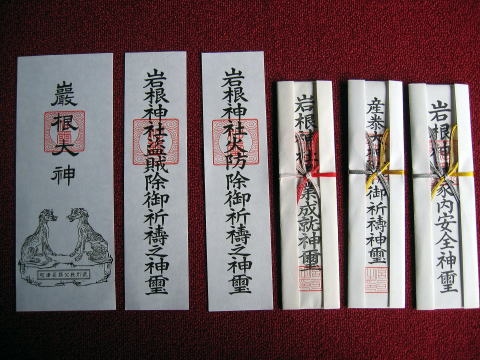 巖根大神
岩根神社盗賊除御祈禱之神璽
岩根神社火防除御祈禱之神璽
岩根神社
成就神璽
産泰
御祈禱神璽
岩根神
家内安全神璽